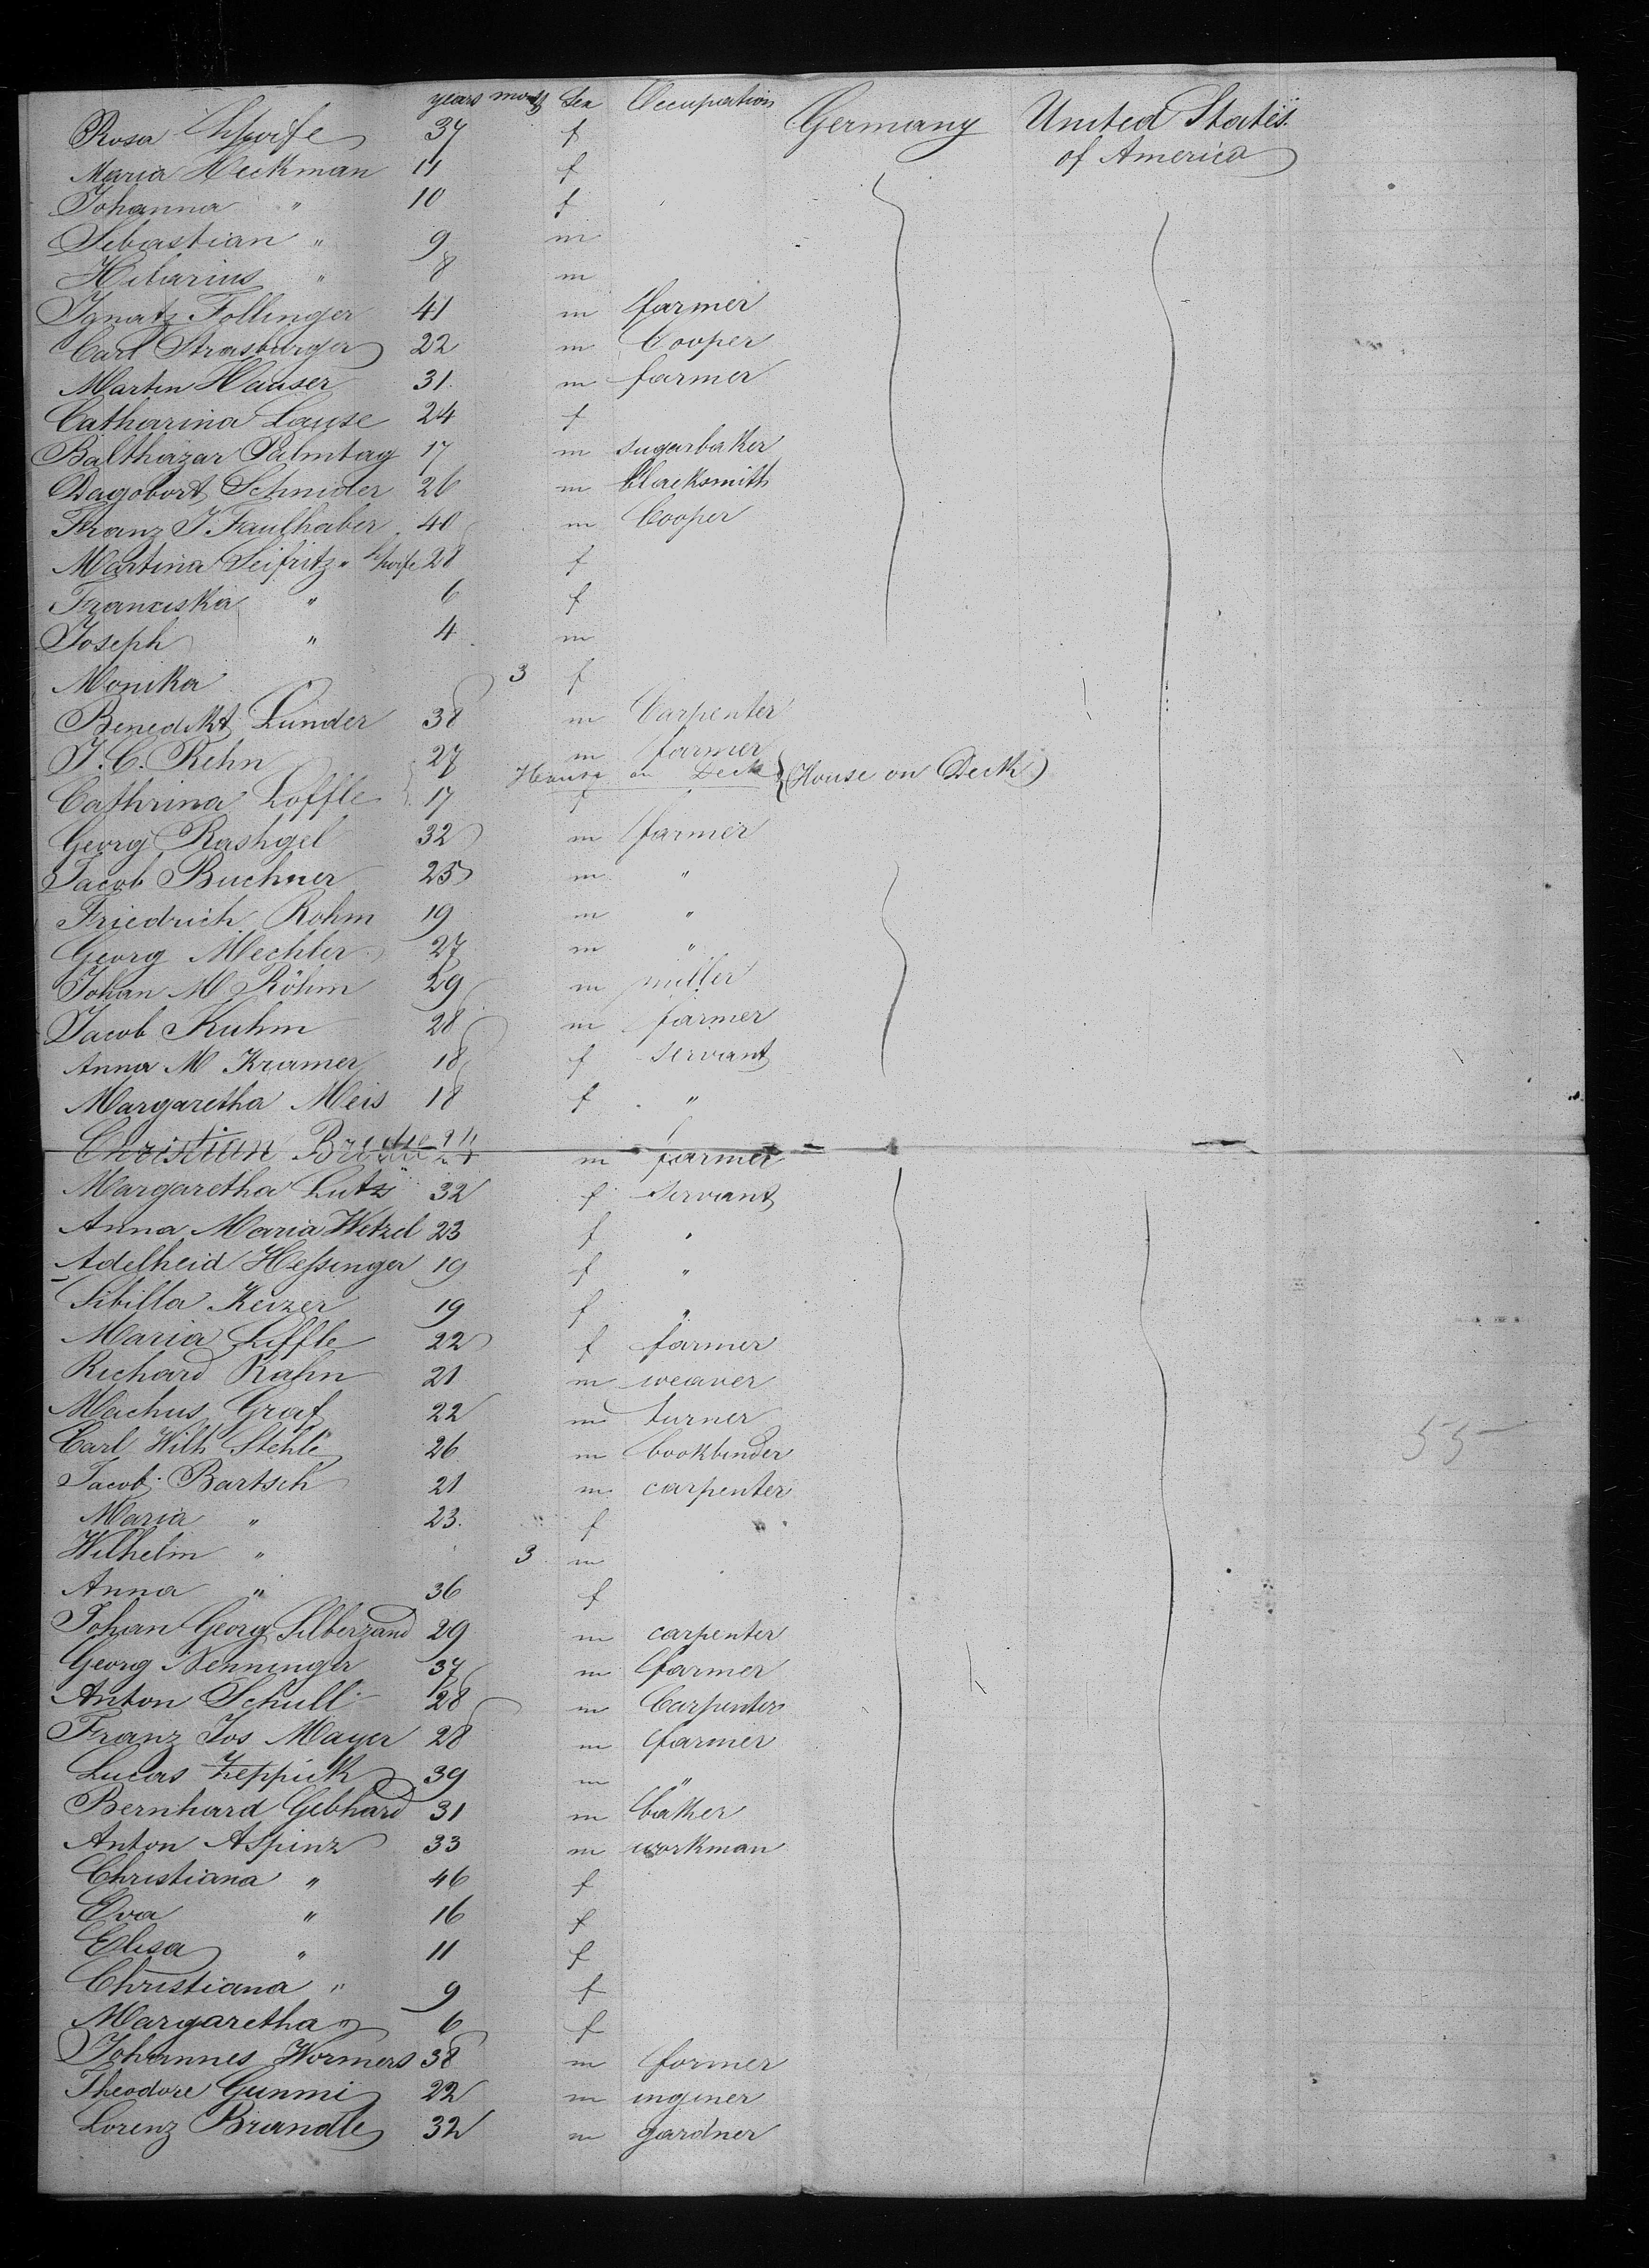 years month Sex Occupation
Germany United States
of America
Rosa " wife 37 f
Maria Heckman 11 f
Johanna " 10 f
Sebastian " 9 m
Hilarius " 8 m
Ignatz Follinger 41 m farmer
Carl Strasburger 22 m Cooper
Martin Hauser 31 m farmer
Catharina Lause 24 f
Balthazar Palmtag 17 m sugarbaker
Dagobort Schnider 26 m blacksmith
Franz J. Faulhaber 40 m Cooper
Martina Seifritz " wife 28 f
Franciska " 6 f
Joseph " 4 m
Monika 3 f
Benedikt Lunder 38 m Carpenter
J. C. Rehn 27 m farmer
House on Deck (House on Deck)
Cathrina Loffle 17 f
Georg Rashgel 32 m farmer
Jacob Buchner 25 m "
Friedrich Rohm 19 m "
Georg Mechler 27 m "
Johan M Röhm 29 m miller
Jacob Kuhm 28 m farmer
Anna M Kramer 18 f servant
Margaretha Meis 18 f "
Christian 24 m farmer
Margaretha Lutz 32 f Servant
Anna Maria Wetzel 23 f "
Adelheid Heßinger 19 f "
Sibilla Keizer 19 f "
Maria Liffle 22 f farmer
Richard Rahn 21 m weaver
Machus Graf 22 m turner
Carl Wilh Stehle 26 m bookbinder
Jacob Bartsch 21 m carpenter
Maria " 23 f
Wilhelm " 3 m
Anna " 36 f
Johan Georg Silberzand 29 m carpenter
Georg Nenninger 37 m farmer
Anton Schull 28 m Carpenter
Franz Jos Mayer 28 m farmer
Lucas Zeppick 39 m "
Bernhard Gebhard 31 m baker
Anton Aspinz 33 m workman
Christiana " 46 f
Eva " 16 f
Elisa " 11 f
Christiana " 9 f
Margaretha " 6 f
Johannes Wormers 38 m former
Theodore Gunmi 22 m inginer
Lorenz Brandle 32 m gardner
55